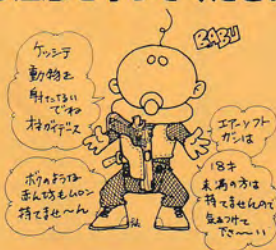 BABU
ケッシテ
動物を
射たないでね
オネガイデス
エアーソフト
ガンは
18才
未満の方は
持てませんので
気をつけて
下さ〜〜い
ボクのような
赤ん坊もムロン
持てませ〜ん